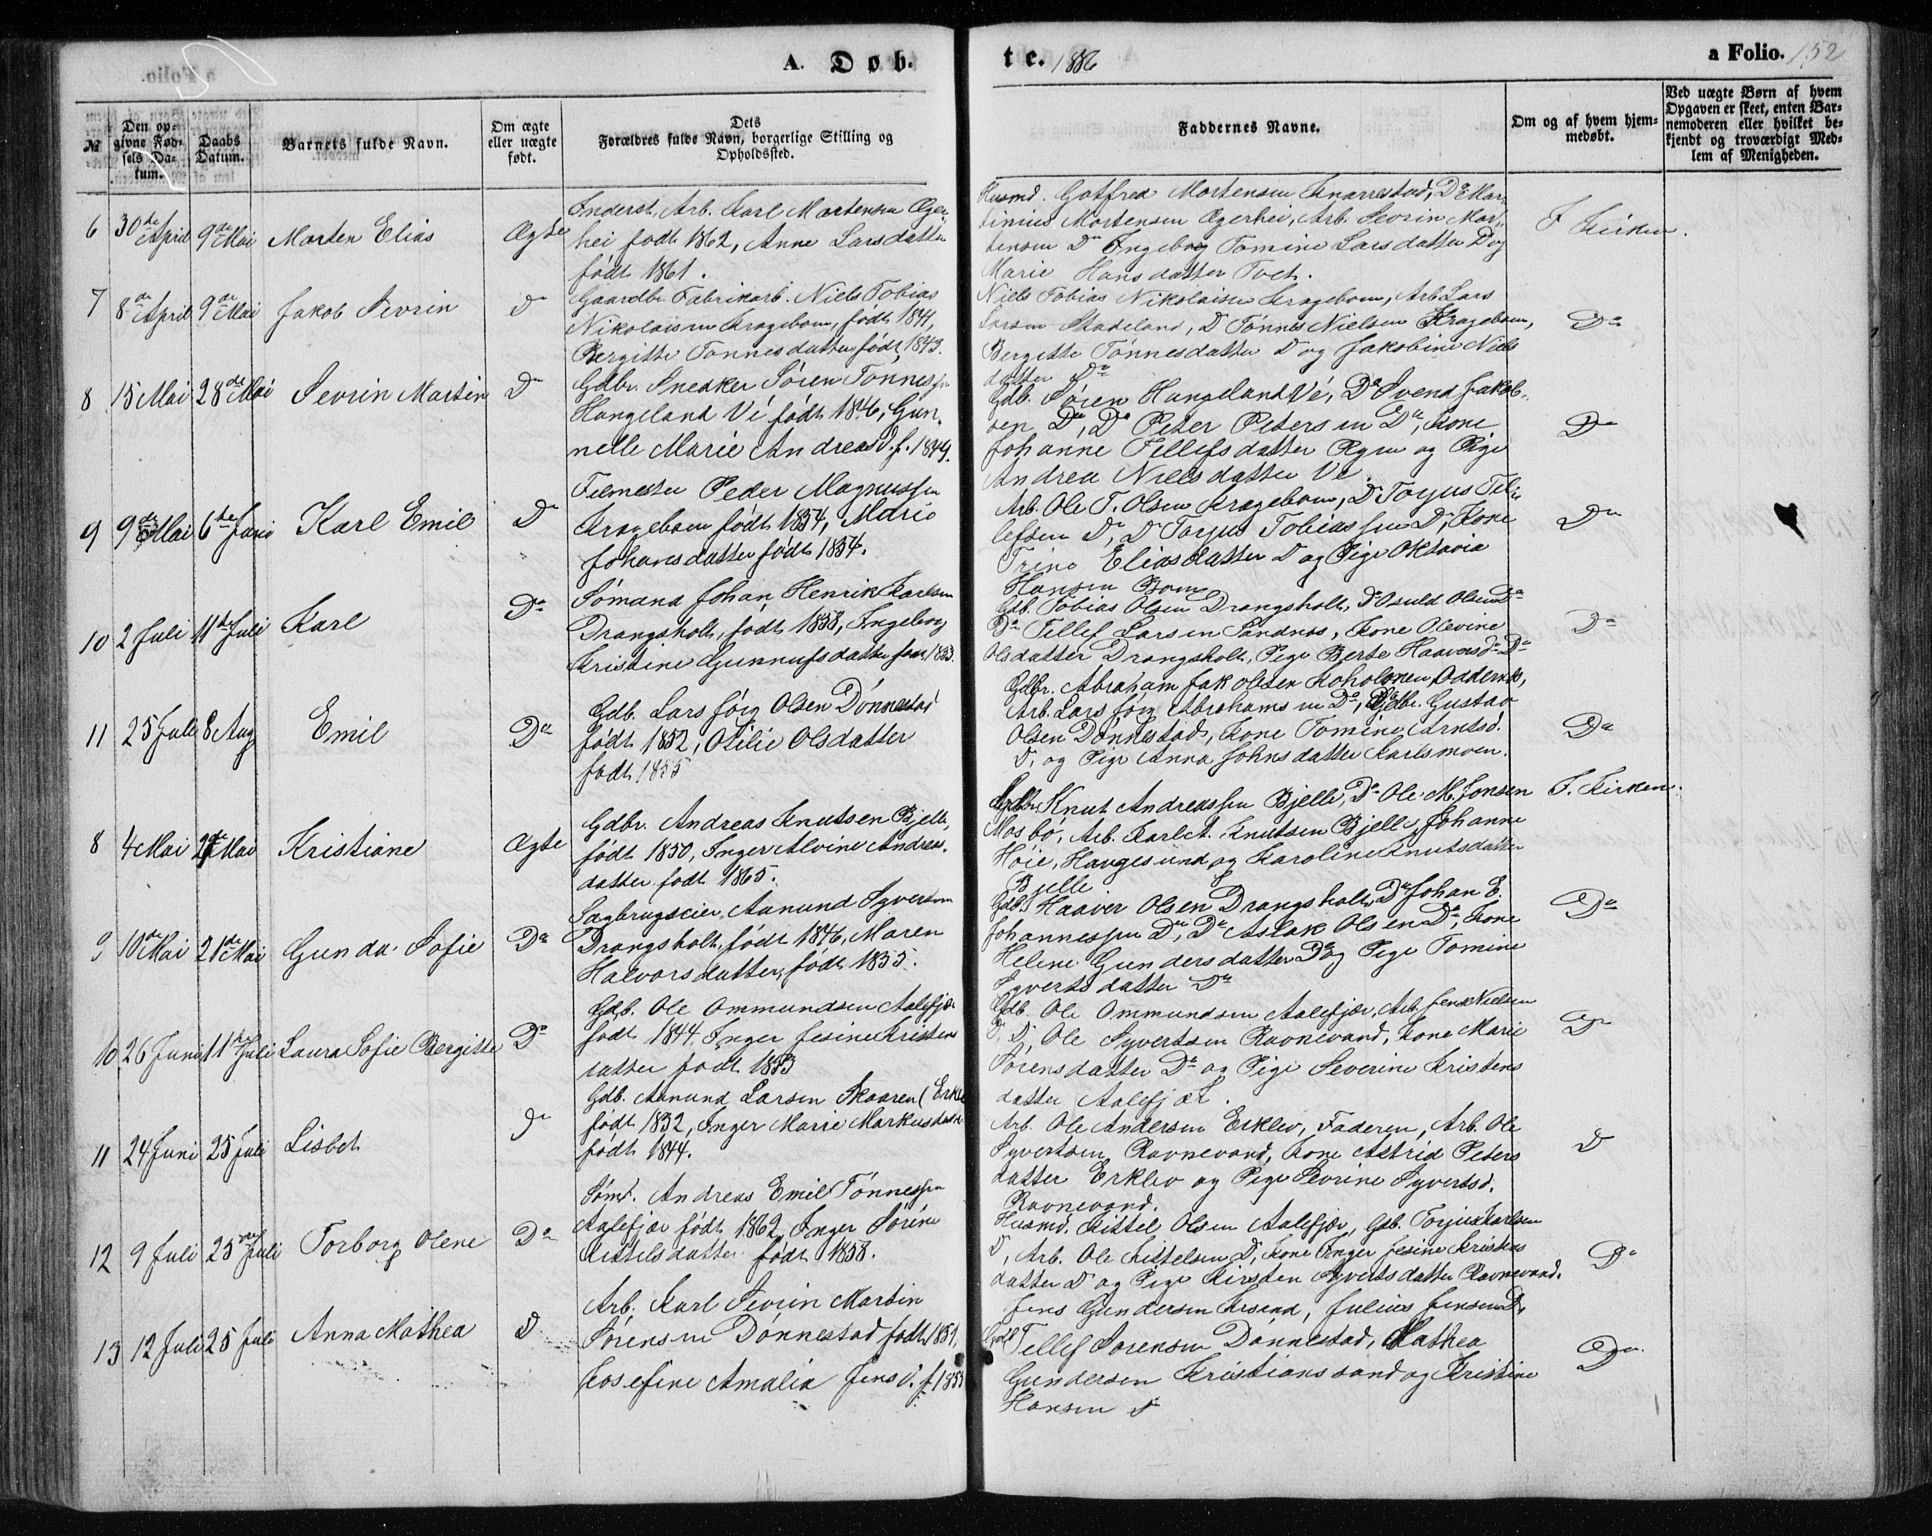 A. Døb-
te. 1886
a Folio. 152
№
Den op-
givne Fød-
sels Da-
tum.
Daabs
Datum.
Barnets fulde Navn.
Om ægte
eller uægte
født.
Dets
Forældres fulde Navn, borgerlige Stilling og
Opholdssted.
Faddernes Navne.
Om og af hvem hjem-
medøbt.
Ved uægte Børn af hvem
Opgaven er skeet, enten Bar-
nemoderen eller hvilket be-
kjendt og troværdigt Med-
lem af Menigheden.
6 30de April 9de Mai Morten Elias Ægte
Inderst, Arb. Karl Mortensen Æger-
hei født 1862, Anne Larsdatter
født 1861.
Husmd. Gotfred Mortensen Knarrestad, Do Mar-
tinius Mortensen Ægerhei, Arb. Sevrin Mor-
tensen Do Ingeborg Tomine Larsdatter D og
Marie Hansdatter Tvet.
I Kirken.
7 8de April 9de Mai Jakob Sevrin D
Gaardbr. Fabrikarb. Niels Tobias
Nikolaisen Kragebom, født 1841,
Bergitte Tønnesdatter født 1843.
Niels Tobias Nikolaisen Kragebom, Arb. Lars
Larsen Stadeland, D Tønnes Nielsen Kragebom,
Bergitte Tønnesdatter D og Jakobine Niels
datter Do
Do
8 15 Mai 28de Mai Sevrin Martin Do
Gdbr. Snedker Søren Tønnessen
Hangeland Vé født 1846, Gun-
nelle Marie Andreasd. f. 1849.
Gdb. Søren Hangeland Vé, Do Svend Jakob-
sen Do, Do Peter Petersen Do, Kone
Johanne Tellefsdatter og Pige
Andrea Nielsdatter Vé.
Do
9 9de Mai 6de Juni Karl Emil Do
Peder Magnussen
Kragebom født 1854, Marie
Johansdatter født 1854.
Arb. Ole T. Olsen Kragebom, Do Torjus Tel-
lefsen Do, D Torjus Tobiassen Do, Kone
Trine Eliasdatter D og Pige Oktavia
Hansen Bom
Do
10 2 Juli 11te Juli Karl Do
Sømand Johan Henrik Karlsen
Drangsholt, født 1858, Ingeborg
Kristine Gunnufsdatter født 1853.
Gdb. Tobias Olsen Drangsholt, Do Osuld Olsen Do
Do Tellef Larsen Sandnes, Kone Olevine
Olsdatter Drangsholt, Pige Berte Haaversd. Do
Do
11 25 Juli 8 Aug Emil Do
Gdb. Lars Jørg Olsen Dønnestad
født 1852, Otilie Olsdatter
født 1855
Gdbr. Abraham Jakobsen Koholmen Oddernes,
Arb. Lars Jørg Abrahamsen Do, Gdbr. Gustav
Olsen Dønnestad, Kone Tomine Arntsd.
D. og Pige Anna Johnsdatter Karlsmoen.
Do
8 4 Mai 2de Mai Kristiane Ægte
Gdbr. Andreas Knutsen Bjelle,
født 1850, Inger Alvine Andreas-
datter født 1865.
Gdbr. Knut Andreassen Bjelle, Do Ole M. Jonsen
Mosbø, Arb. Karl A. Knutsen Bjelle, Johanne
Høie, Haugesund og Karoline Knutsdatter
Bjelle
I. Kirken.
9 10de Mai 21de Mai Gunda Sofie Do
Sagbrugseier Aanund Syvertsen
Drangsholt, født 1846, Maren
Halvorsdatter, født 1855.
Gdb. Haaver Olsen Drangsholt, Do Johan E.
Johannessen Do, Do Aslak Olsen Do, Kone
Helene Gundersdatter Do og Pige Tomine
Syvertsdatter Do
Do
10 26 Juni 11te Juli Laura Sofie Bergitte Do
Gdb. Ole Ommundsen Aalefjær
født 1844, Inger Jesine Kristens
datter født 1853
Gdb. Ole Ommundsen Aalefjær, Arb. Jens Nielsen
D, Ole Syvertsen Ravnevand, Kone Marie
Sørensdatter Do og Pige Severine Kristens
datter Aalefjær.
Do
11 24 Juni 25 Juli Lisbet Do
Gdb. Aanund Larsen Skaaren (Erklev
født 1832, Inger Marie Markusdatter
født 1844.
Arb. Ole Andersen Erklev, Faderen, Arb. Ole
Syvertsen Ravnevand, Kone Astrid Peters
datter Erklev og Pige Sevrine Syvertsd.
Ravnevand.
D
12 9 Juli 25de Juli Torborg Olene Do
Sømd. Andreas Emil Tønnessen
Aalefjær født 1862, Inger Sørine
Kittelsdatter født 1858.
Husmd. Kittel Olsen Aalefjær, Gdb. Torjus Karlsen
D, Arb. Ole Kittelsen D, Kone Inger Jesine Kristens
datter D og Pige Kirsten Syvertsdatter Ravnevand.
Do
13 12 Juli 25 Juli Anna Mathea D
Arb. Karl Sevrin Martin
Sørensen Dønnestad født 1851,
Josefine Amalia Jensd. f. 1855
Jens Gundersen Krsand, Julius Jensen D,
Gdb Tellef Sørensen Dønnestad, Mathea
Gundersen Kristianssand og Kristine
Hansen D
Do